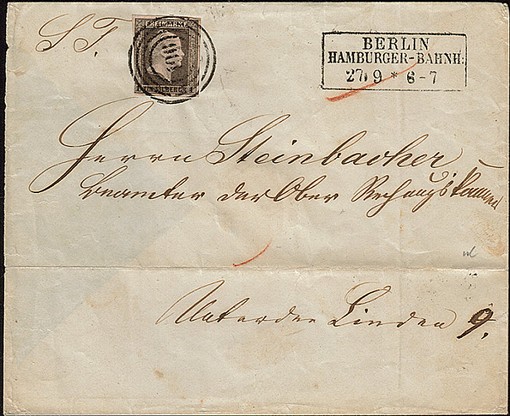 S. T.
BERLIN
HAMBURGER-BAHNH:
27/9 * 6-7
Herrn Steinbacher
Beamter der Ober Rechnungskammer
Unter den Linden 9.